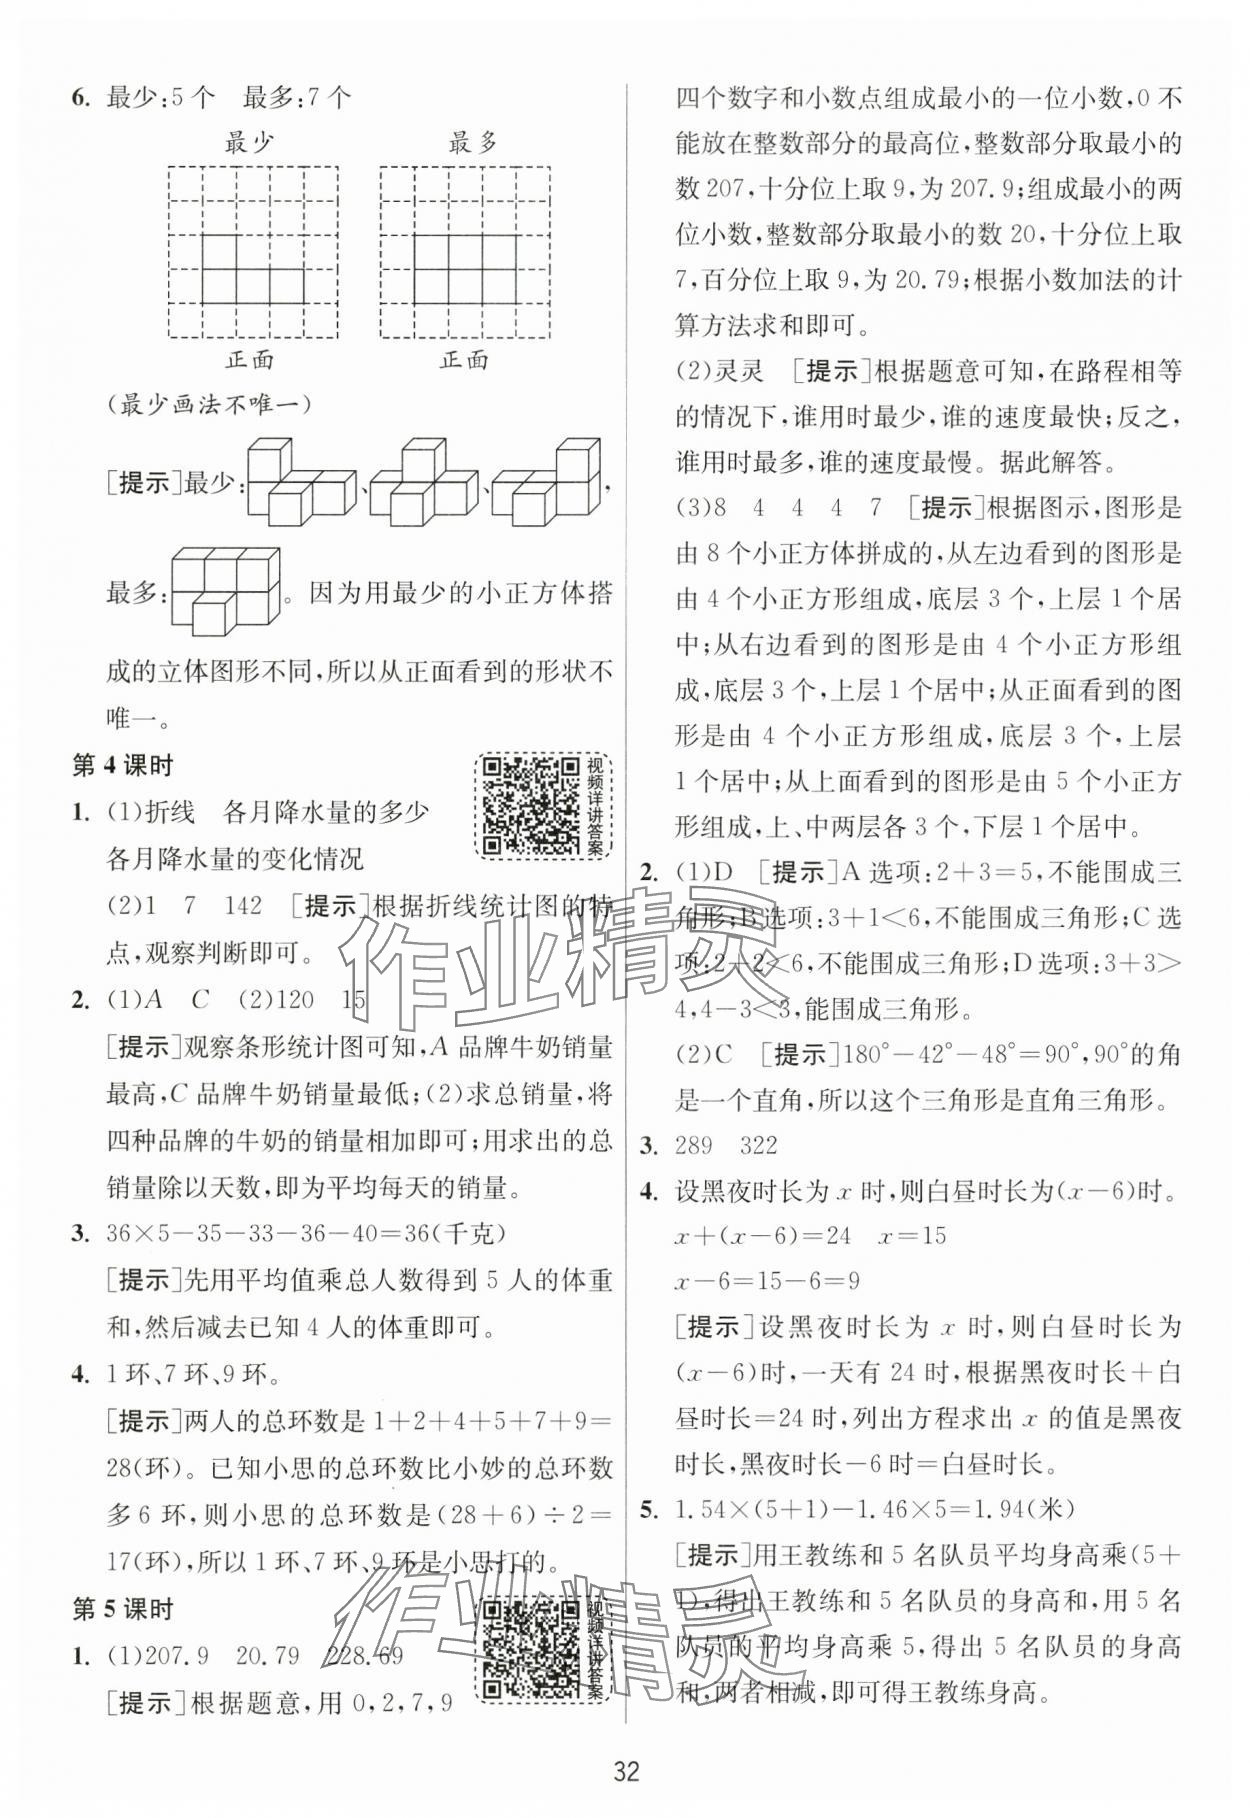 6. 最少:5个 最多:7个
最少 最多
正面 正面
(最少画法不唯一)
[提示]最少: 、 、 ,
最多: 。因为用最少的小正方体搭
成的立体图形不同,所以从正面看到的形状不
唯一。
第4课时
视频详讲答案
1. (1)折线 各月降水量的多少
各月降水量的变化情况
(2)1 7 142 [提示]根据折线统计图的特
点,观察判断即可。
2. (1)A C (2)120 15
[提示]观察条形统计图可知,A品牌牛奶销量
最高,C品牌牛奶销量最低;(2)求总销量,将
四种品牌的牛奶的销量相加即可;用求出的总
销量除以天数,即为平均每天的销量。
3. 36×5-35-33-36-40=36(千克)
[提示]先用平均值乘总人数得到5人的体重
和,然后减去已知4人的体重即可。
4. 1环、7环、9环。
[提示]两人的总环数是1+2+4+5+7+9=
28(环)。已知小思的总环数比小妙的总环数
多6环,则小思的总环数是(28+6)÷2=
17(环),所以1环、7环、9环是小思打的。
第5课时
视频详讲答案
1. (1)207.9 20.79 228.69
[提示]根据题意,用0,2,7,9
四个数字和小数点组成最小的一位小数,0不
能放在整数部分的最高位,整数部分取最小的
数207,十分位上取9,为207.9;组成最小的两
位小数,整数部分取最小的数20,十分位上取
7,百分位上取9,为20.79;根据小数加法的计
算方法求和即可。
(2)灵灵 [提示]根据题意可知,在路程相等
的情况下,谁用时最少,谁的速度最快;反之,
谁用时最多,谁的速度最慢。据此解答。
(3)8 4 4 4 7 [提示]根据图示,图形是
由8个小正方体拼成的,从左边看到的图形是
由4个小正方形组成,底层3个,上层1个居
中;从右边看到的图形是由4个小正方形组
成,底层3个,上层1个居中;从正面看到的图
形是由4个小正方形组成,底层3个,上层
1个居中;从上面看到的图形是由5个小正方
形组成,上、中两层各3个,下层1个居中。
2. (1)D [提示]A选项:2+3=5,不能围成三
角形;B选项:3+1<6,不能围成三角形;C选
项:2+2<6,不能围成三角形;D选项:3+3>
4,4-3<3,能围成三角形。
(2)C [提示]180°-42°-48°=90°,90°的角
是一个直角,所以这个三角形是直角三角形。
3. 289 322
4. 设黑夜时长为x时,则白昼时长为(x-6)时。
x+(x-6)=24 x=15
x-6=15-6=9
[提示]设黑夜时长为x时,则白昼时长为
(x-6)时,一天有24时,根据黑夜时长+白
昼时长=24时,列出方程求出x的值是黑夜
时长,黑夜时长-6时=白昼时长。
5. 1.54×(5+1)-1.46×5=1.94(米)
[提示]用王教练和5名队员平均身高乘(5+
1),得出王教练和5名队员的身高和,用5名
队员的平均身高乘5,得出5名队员的身高
和,两者相减,即可得王教练身高。
作业精灵
作业精灵
32